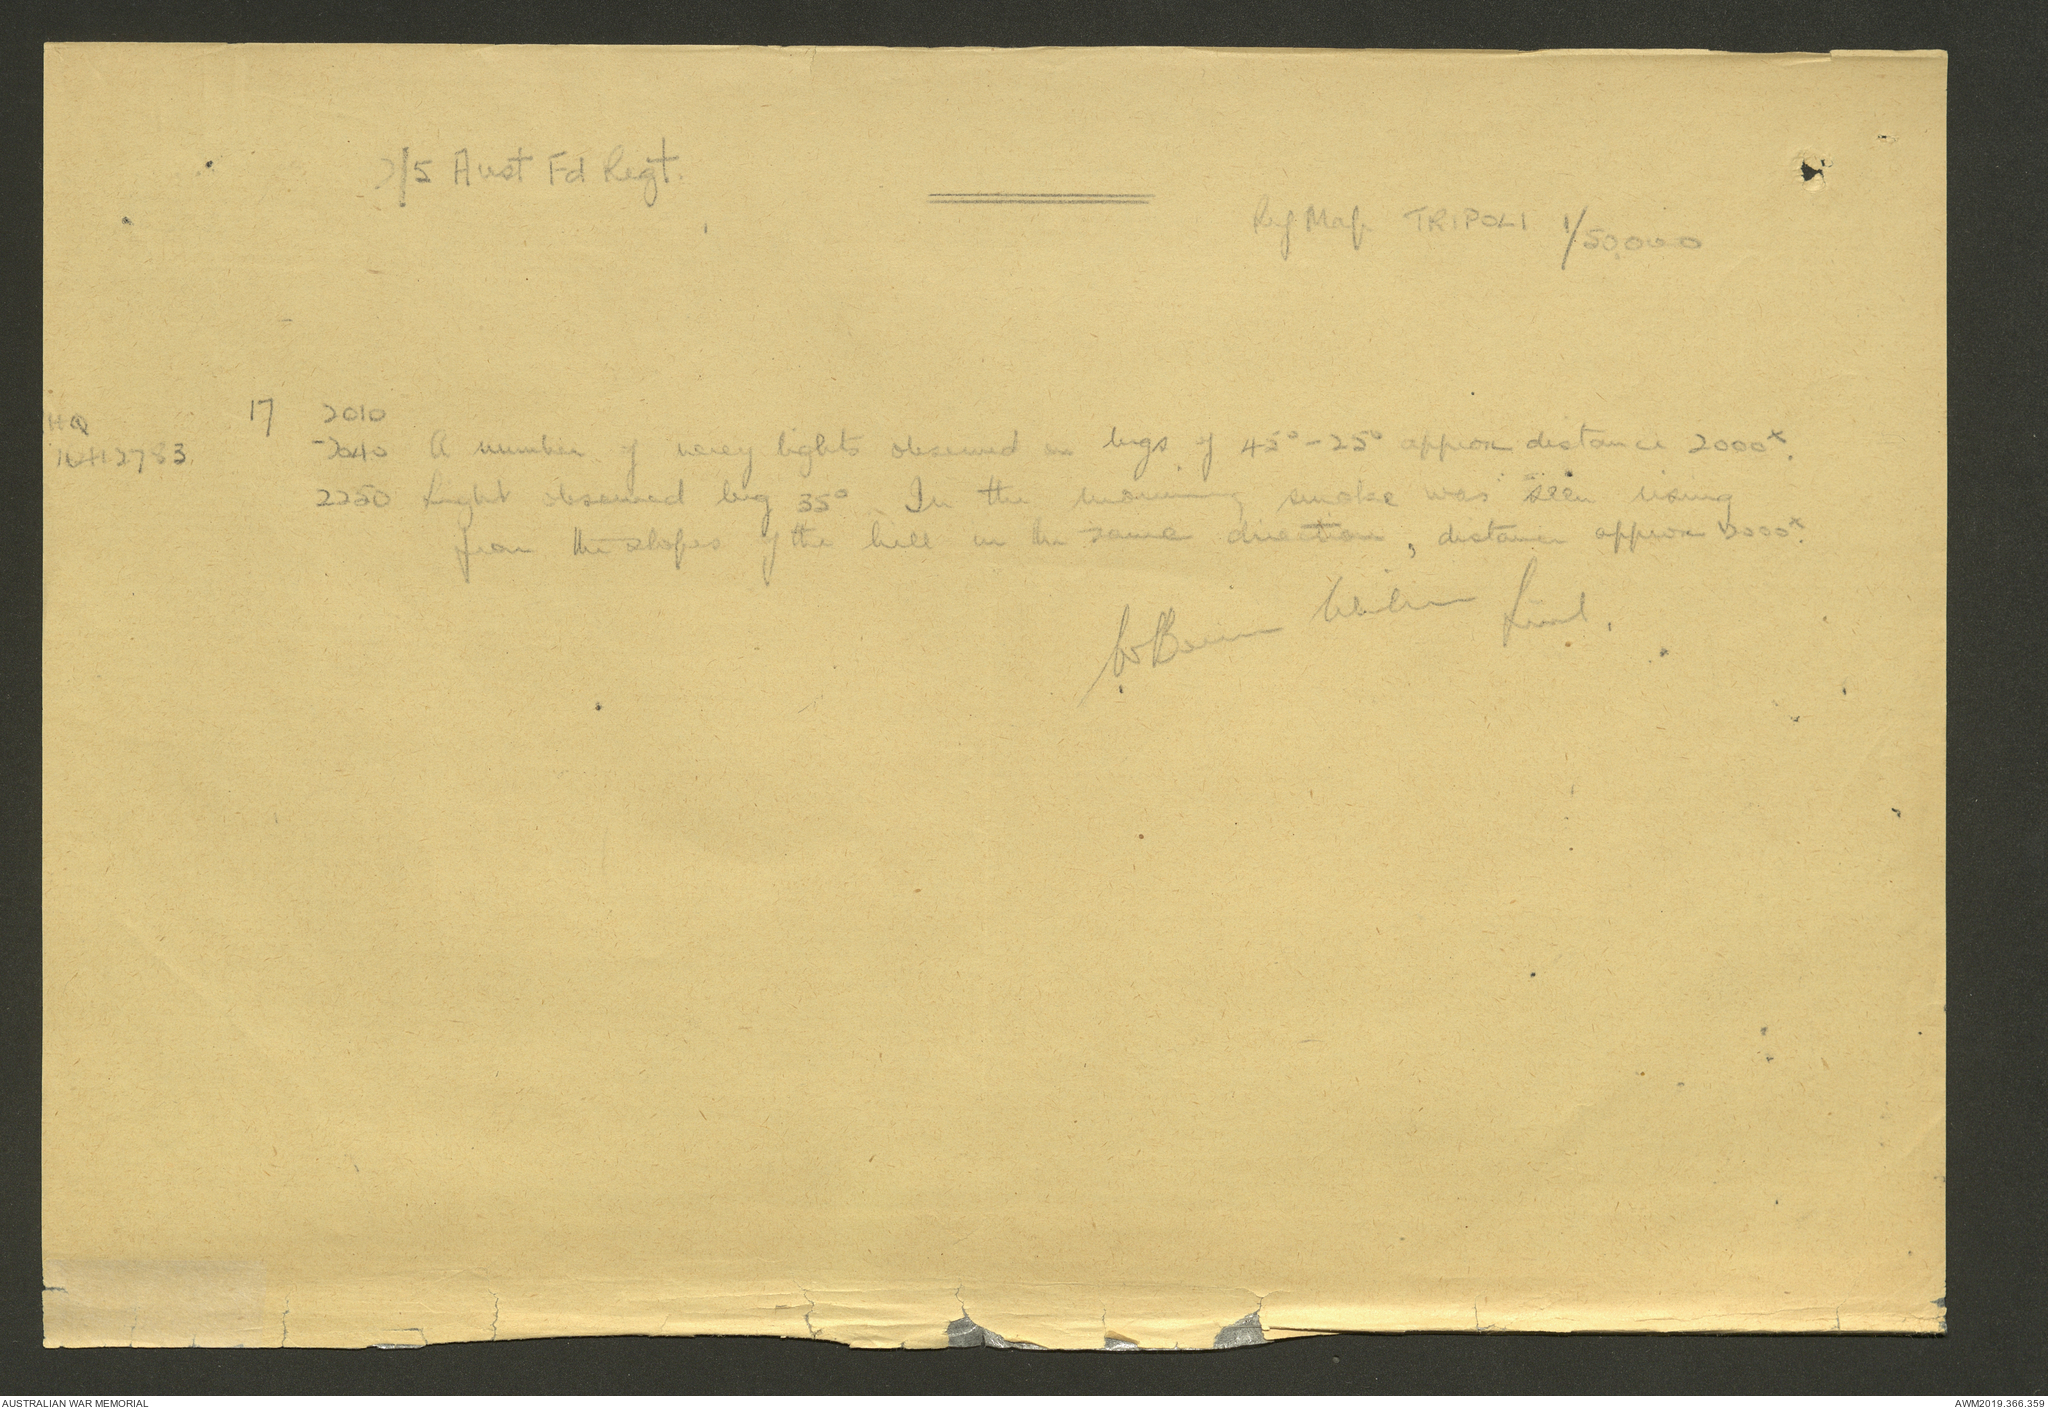 2/5 Aust Fd Regt.
Ref Map TRIPOLI 1/50000
HQ
16412783
17 2010
-2040 A number of verey lights observed on brgs of 45° - 25° approx distance 2000x.
2250 Light observed brg 35°. In the morning smoke was seen rising
from the slopes of the hill in the same direction, distance approx 2000x.
Lieut.
AUSTRALIAN WAR MEMORIAL
AWM2019.366.359